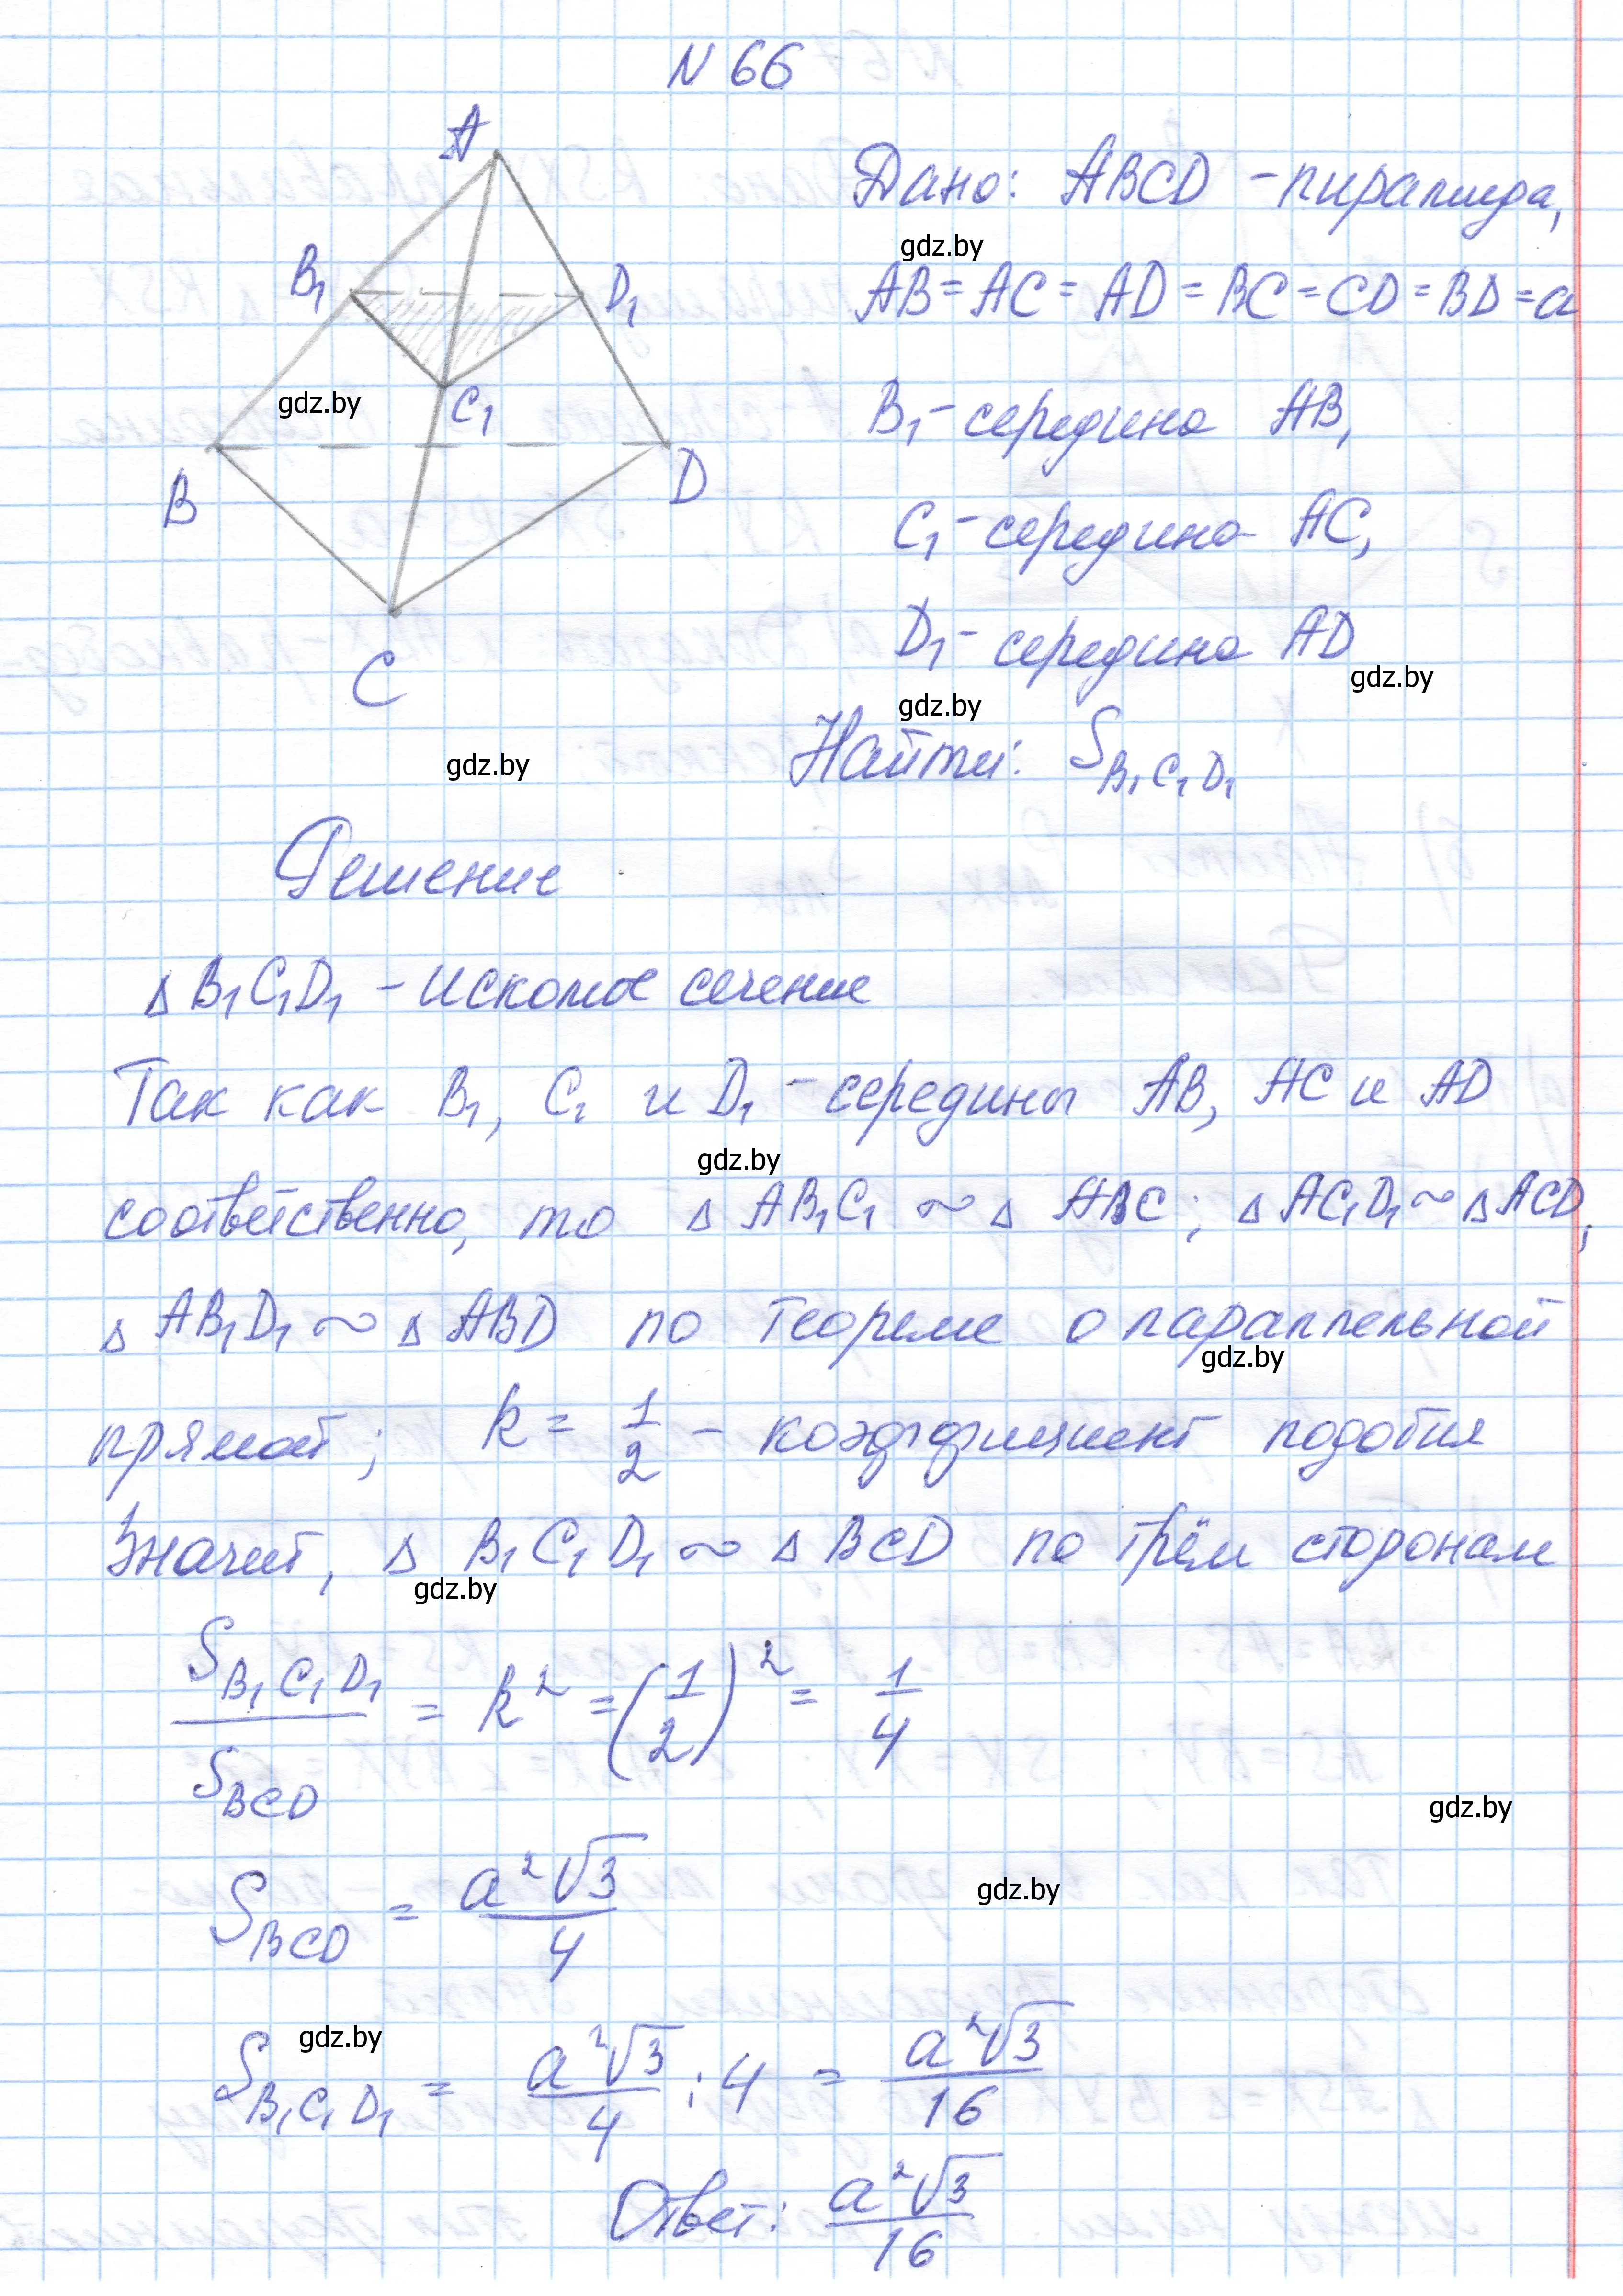 N 66
A
B₁
D₁
C₁
B
D
C
Дано: ABCD - пирамида,
AB = AC = AD = BC = CD = BD = a
B₁ - середина AB,
C₁ - середина AC,
D₁ - середина AD
Найти: S B₁C₁D₁
gdz.by
gdz.by
gdz.by
gdz.by
gdz.by
Решение
△ B₁C₁D₁ - искомое сечение
Так как B₁, C₁ и D₁ - середины AB, AC и AD
gdz.by
соответственно, то △ AB₁C₁ ~ △ ABC; △ AC₁D₁ ~ △ ACD,
△ AB₁D₁ ~ △ ABD по теореме о параллельной
gdz.by
прямой; k = 1/2 - коэффициент подобия
Значит, △ B₁C₁D₁ ~ △ BCD по трём сторонам
gdz.by
S B₁C₁D₁ / S BCD = k² = (1/2)² = 1/4
gdz.by
S BCD = a²√3 / 4
gdz.by
gdz.by
S B₁C₁D₁ = a²√3 / 4 : 4 = a²√3 / 16
Ответ: a²√3 / 16